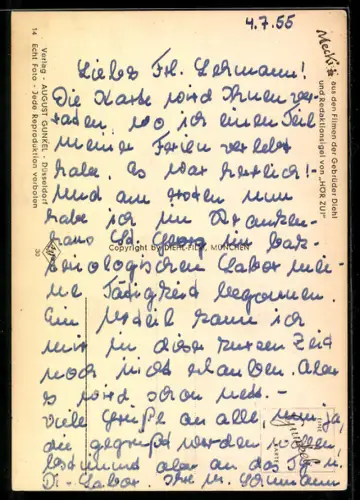 4.7.55
Liebes Frl. Lehmann!
Die Karte wird Ihnen ver-
raten, wo ich einen Teil
meiner Ferien verlebt
habe. Es war herrlich!-
Und am ersten nun
habe ich im Kranken-
haus St. Georg im bak-
teriologischen Labor mei-
ne Tätigkeit begonnen.
Ein Urteil kann ich
mir in dieser kurzen Zeit
noch nicht erlauben. Aber
es wird schon nett.-
Viele Grüße an alle, nun ja,
die gegrüßt werden wollen,
bestimmt aber an das
Di-Labor. Ihre
Mecki
aus den Filmen der Gebrüder Diehl
und Redaktionsigel von „HÖR ZU!"
Copyright by DIEHL-FILM, MÜNCHEN
Verlag - AUGUST GUNKEL - Düsseldorf
14 Echt Foto - Jede Reproduktion verboten
30